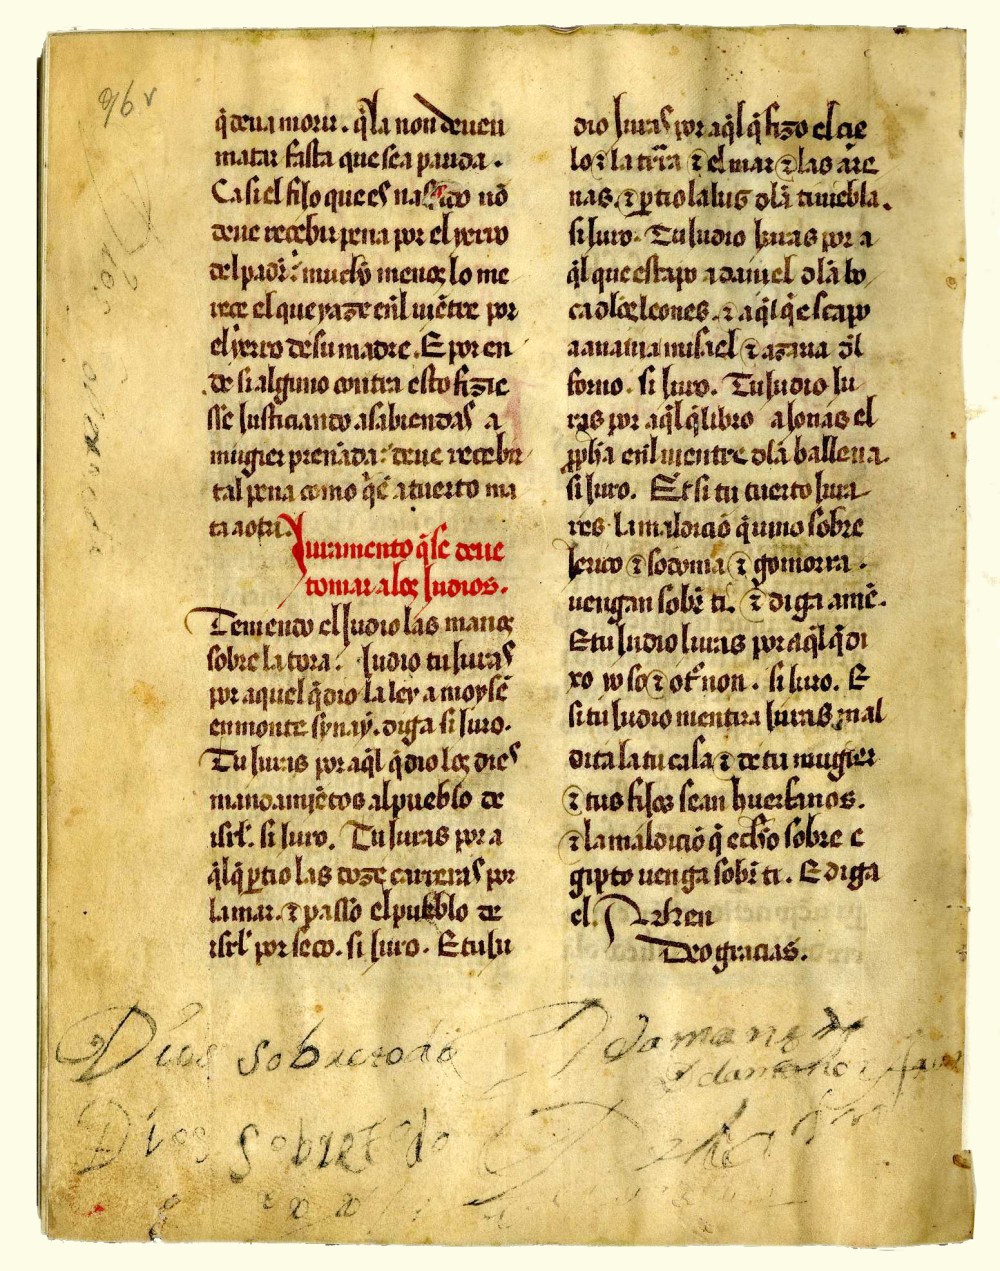 96 v
q̃ deua morir. q̃ la non deuen
matar fasta que sea parida.
Ca si el fijo que es nasçido nõ
deue recebir pena por el yerro
del padre: mucho menos lo me
reçe el que yaze en̄l uiẽtre por
el yerro de su madre. E por en
de si alguno contra esto fizie
sse Justiciando a sabiendas a
mugier prennada: deue recebir
tal pena como q̃ẽ a tuerto ma
ta a otro.
Iuramento q̃ se deue
tomar a los Judios.
Teniendo el Judio las manos
sobre la tora. Judio tu Juras
por aquel q̃ dio la ley a moysẽ
en monte synay. diga si Juro.
Tu Juras por aq̃l q̃ dio los dies
mandamiẽtos al pueblo de
isrl̃. si Juro. Tu Juras por a
q̃l q̃ ꝑtio las doze carreras por
la mar. ⁊ passo el pueblo de
isrl̃ por seco. si Juro. E tu Ju
dio Juras por aq̃l q̃ fizo el çie
lo ⁊ la tr̃ra ⁊ el mar ⁊ las are
nas. ⁊ ꝑtio la lus dla tiniebla.
si Juro. Tu Judio Juras por a
q̃l que estapo a daniel dla bo
ca dlos leones. ⁊ a q̃l q̃ escapo
a anania misael ⁊ azaria dl
forno. si Juro. Tu Judio Ju
ras por aq̃l q̃ libro a Jonas el
ꝓph̃a en̄l uientre dla ballena.
si Juro. Et si tu tuerto Jura
res la maldiciõ q̃ uino sobre
Jerico ⁊ sodoma ⁊ gomorra.
uengan sobr̃ ti. ⁊ diga amẽ.
E tu Judio Juras por aq̃l q̃ di
xo yo so ⁊ otr̃ non. si Juro. E
si tu Judio mentira Juras mal
dita la tu casa ⁊ de tu mugier
⁊ tus fijos sean huerfanos.
⁊ la maldiciõ q̃ echo sobre e
gipto uenga sobr̃ ti. E diga
el. Amen
Deo gracias.
Dios sobretodo
Dios sobretodo